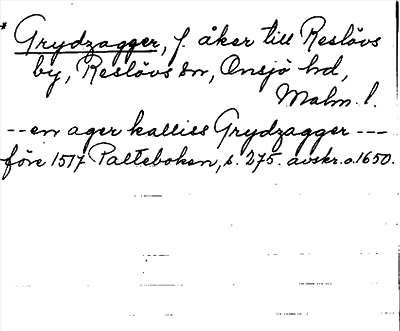 * Grydzagger, f. åker till Reslövs
by, Reslövs sn, Onsjö hd,
Malm. l.
-- en ager kalliss Grydzagger ---
före 1517 Palteboken, s. 275. avskr. o. 1650.